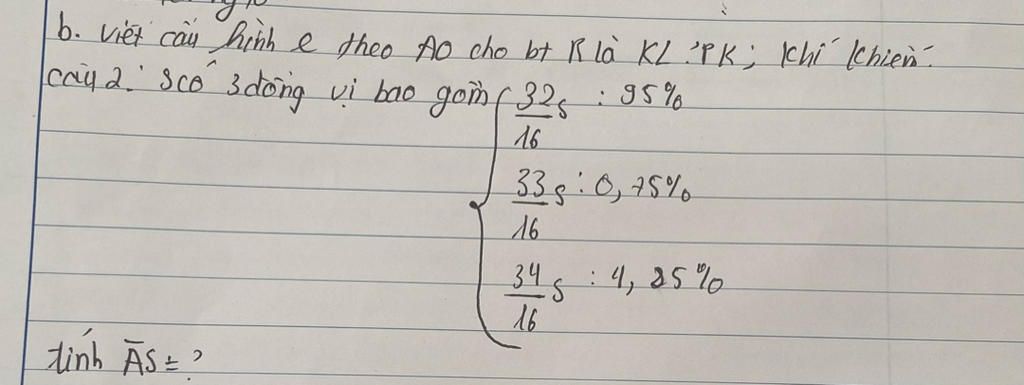 b. viết cấu hình e theo AO cho bt R là KL: PK; khí khiên
câu 2: S có 3 đồng vị bao gồm 32 S : 95%
16
33 S : 0,75%
16
34 S : 4,25%
16
tính ĀS = ?